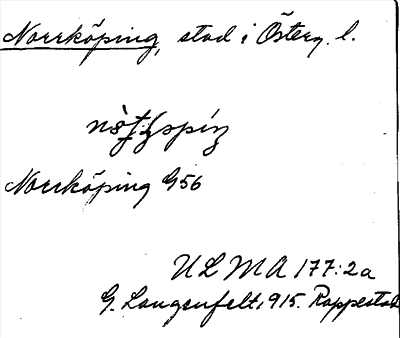 Norrköping, stad i Österg. l.
Norrköping G56
ULMA 177:2a
G. Langenfelt, 1915. Rappestad